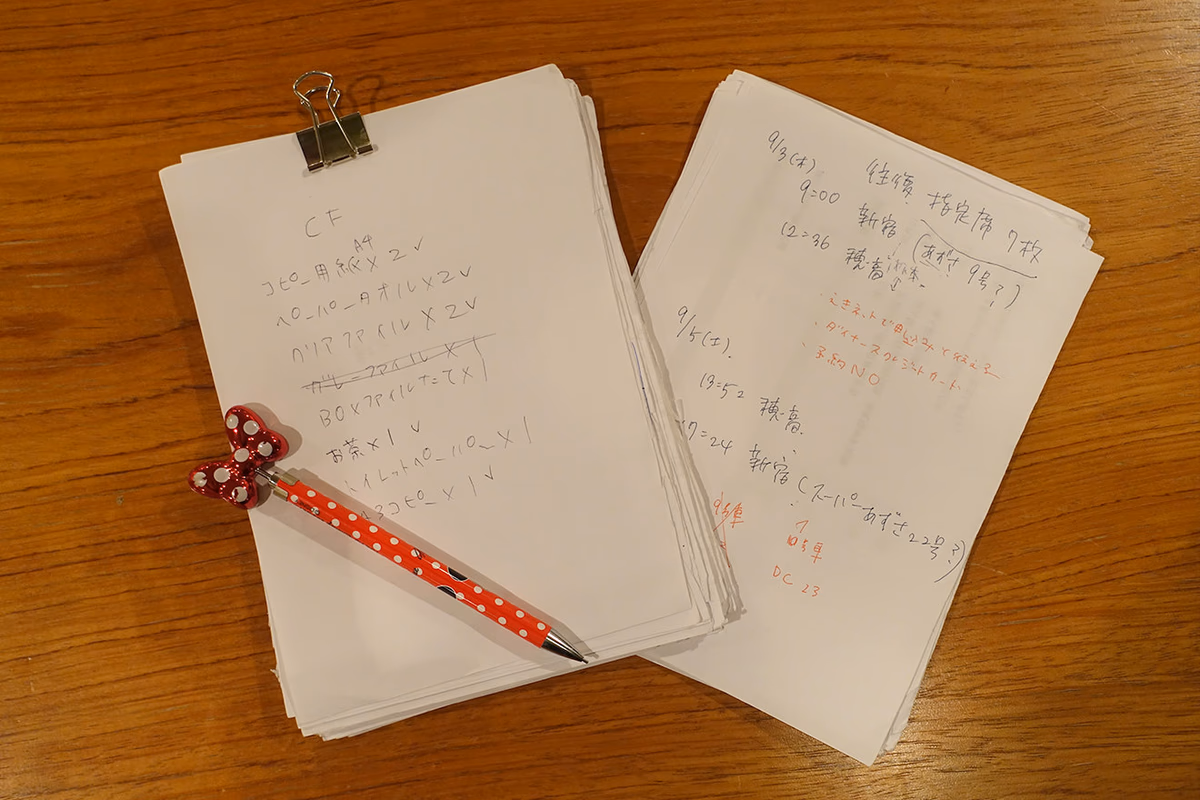 CF
A4
コピー用紙 × 2 ✓
ペーパータオル × 2 ✓
クリアファイル × 2 ✓
ガレーファイル × 1
BOXファイルたて × 1
お茶 × 1 ✓
イレットペーパー × 1
コピー × 1 ✓
9/3(木)
往復 指定席 7枚
9=00 新宿 (あずさ 9号?)
12=36 穂高
・えきネットで申込みで行える
・ダイナースクレジットカード
・予約NO
9/5(土).
13=52 穂高
17=24 新宿 (スーパーあずさ22号?)
9号車
↑
10号車
DC 23